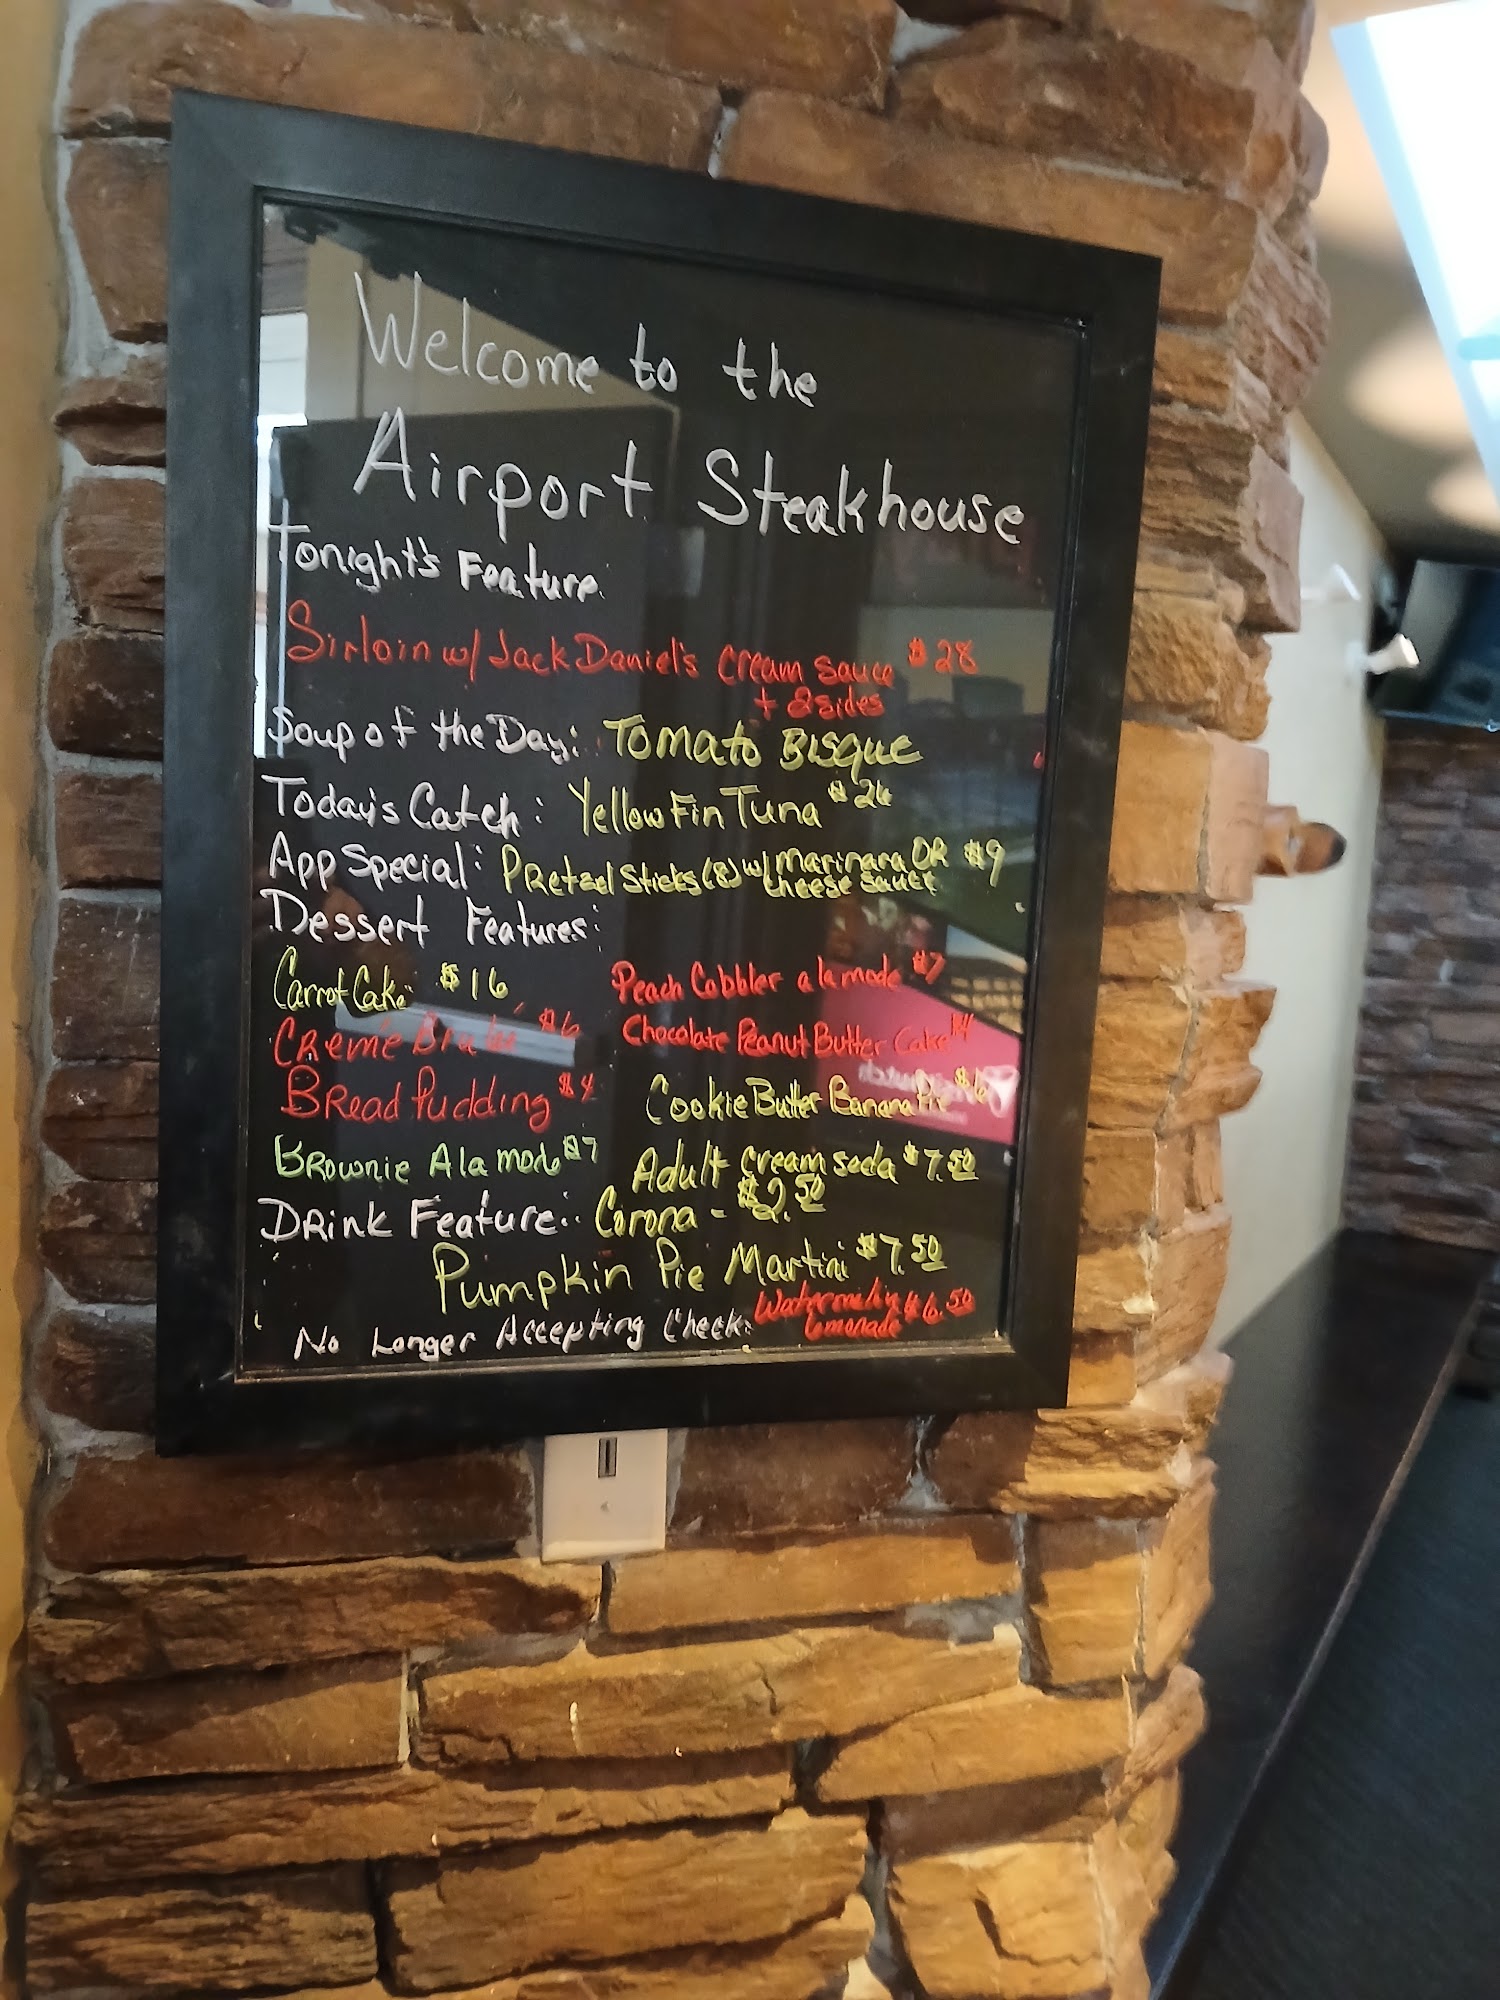 Welcome to the
Airport Steakhouse
Tonight's Feature:
Sirloin w/ Jack Daniel's Cream Sauce $28
+ 2 sides
Soup of the Day: Tomato Bisque
Today's Catch: Yellow Fin Tuna $26
App Special: Pretzel Sticks (8) w/ Marinara OR $9
cheese sauce
Dessert Features:
Carrot Cake $16 Peach Cobbler a la mode $7
Creme Brule $6 Chocolate Peanut Butter Cake
Bread Pudding $4 Cookie Butter Banana Pie $6
Brownie Ala mode $7 Adult cream soda $7.50
Drink Feature: Corona - $2.50
Pumpkin Pie Martini $7.50
No Longer Accepting Check: Watermelon $6.50
lemonade